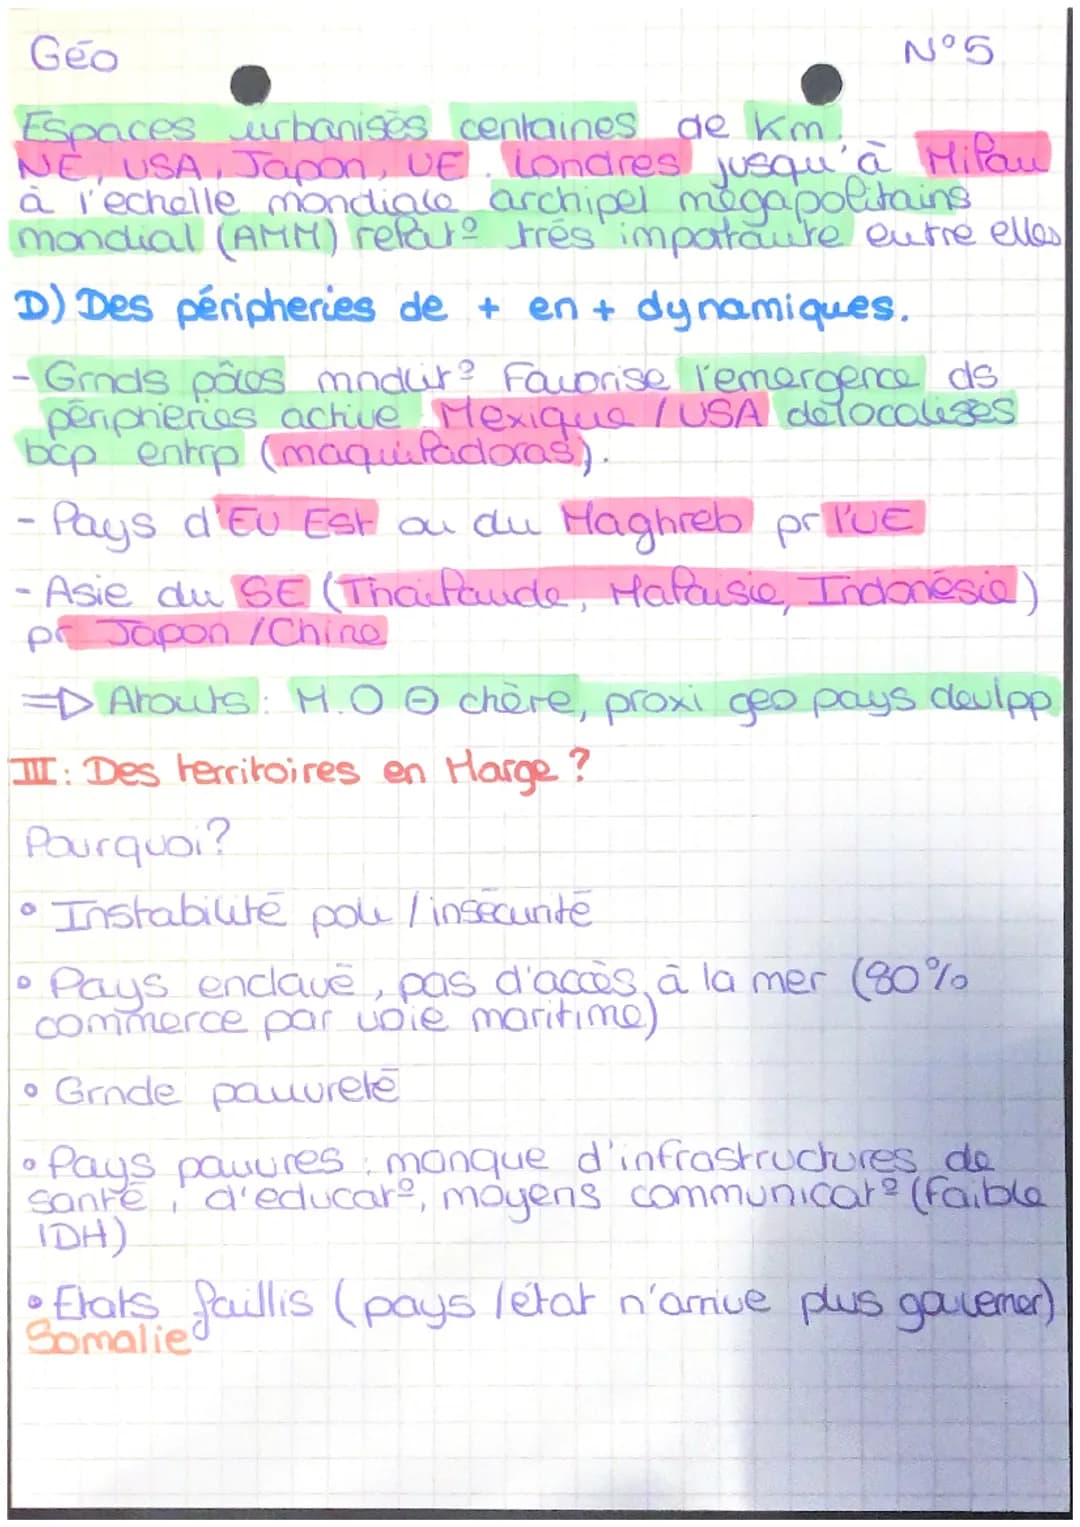 Géo N°5
Espaces urbanisés centaines de Km.
NE, USA, Japon, UE. Londres jusqu'à Milan
à l'echelle mondiale archipel mégapolitains
mondial (AMM) relat° très importante entre elles
D) Des péripheries de + en + dynamiques.
- Grnds pôles mndur° Favorise l'emergence ds
péripheries active Mexique / USA délocalisés
bcp entrp (maquiladoras).
- Pays d'EU Est ou du Maghreb pr l'UE
- Asie du SE (Thaïlande, Malaisie, Indonésie)
pr Japon / Chine
=> Atouts : M.O ⊖ chère, proxi geo pays devlpp
III : Des territoires en Marge ?
Pourquoi ?
• Instabilité pole / insécurité
• Pays enclavé, pas d'accès à la mer (80%
commerce par voie maritime)
• Grnde pauvreté
• Pays pauvres : manque d'infrastructures de
santé, d'educat°, moyens communicat° (Faible
IDH)
• Etats faillis (pays / état n'arrive plus gouverner)
Somalie